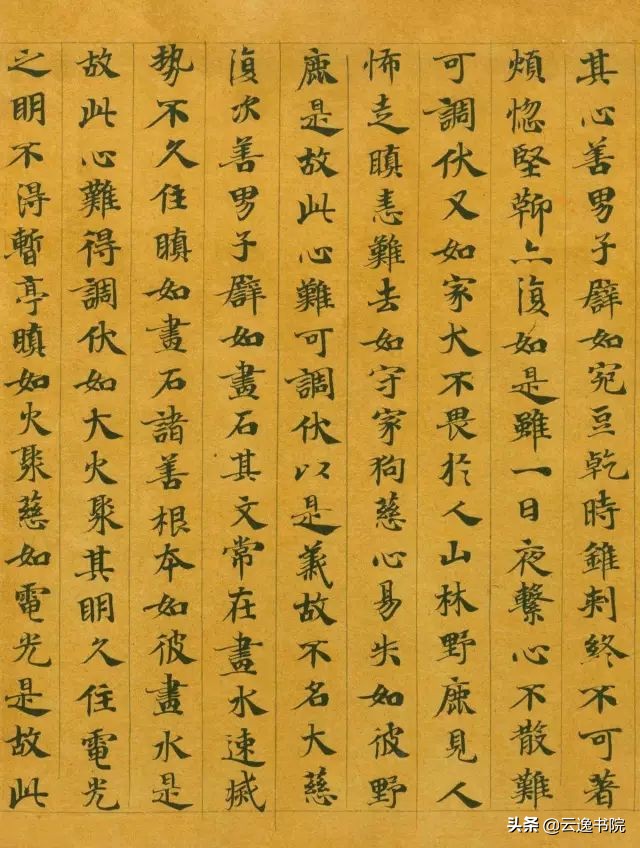 其心善男子譬如宛豆乾時錐刺終不可著
煩惱堅鞕亦復如是雖一日夜繫心不散難
可調伏又如家犬不畏於人山林野鹿見人
怖走瞋恚難去如守家狗慈心易失如彼野
鹿是故此心難可調伏以是義故不名大慈
復次善男子譬如畫石其文常在畫水速滅
勢不久住瞋如畫石諸善根本如彼畫水是
故此心難得調伏如大火聚其明久住電光
之明不得暫亭瞋如火聚慈如電光是故此
头条 @云逸书院